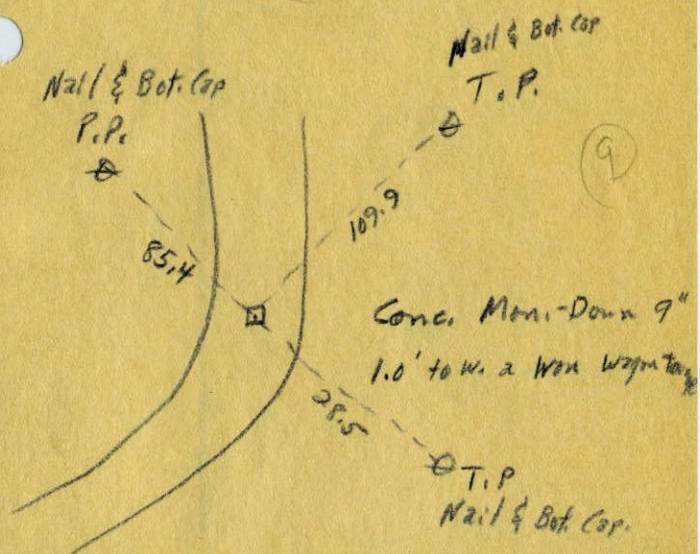 Nail & Bot. Cap
T. P.
Nail & Bot. Cap
P.P.
9
109.9
85.4
Conc. Mon.-Down 9"
1.0' to w. a Iron Wagon
28.5
T.P
Nail & Bot. Cap.